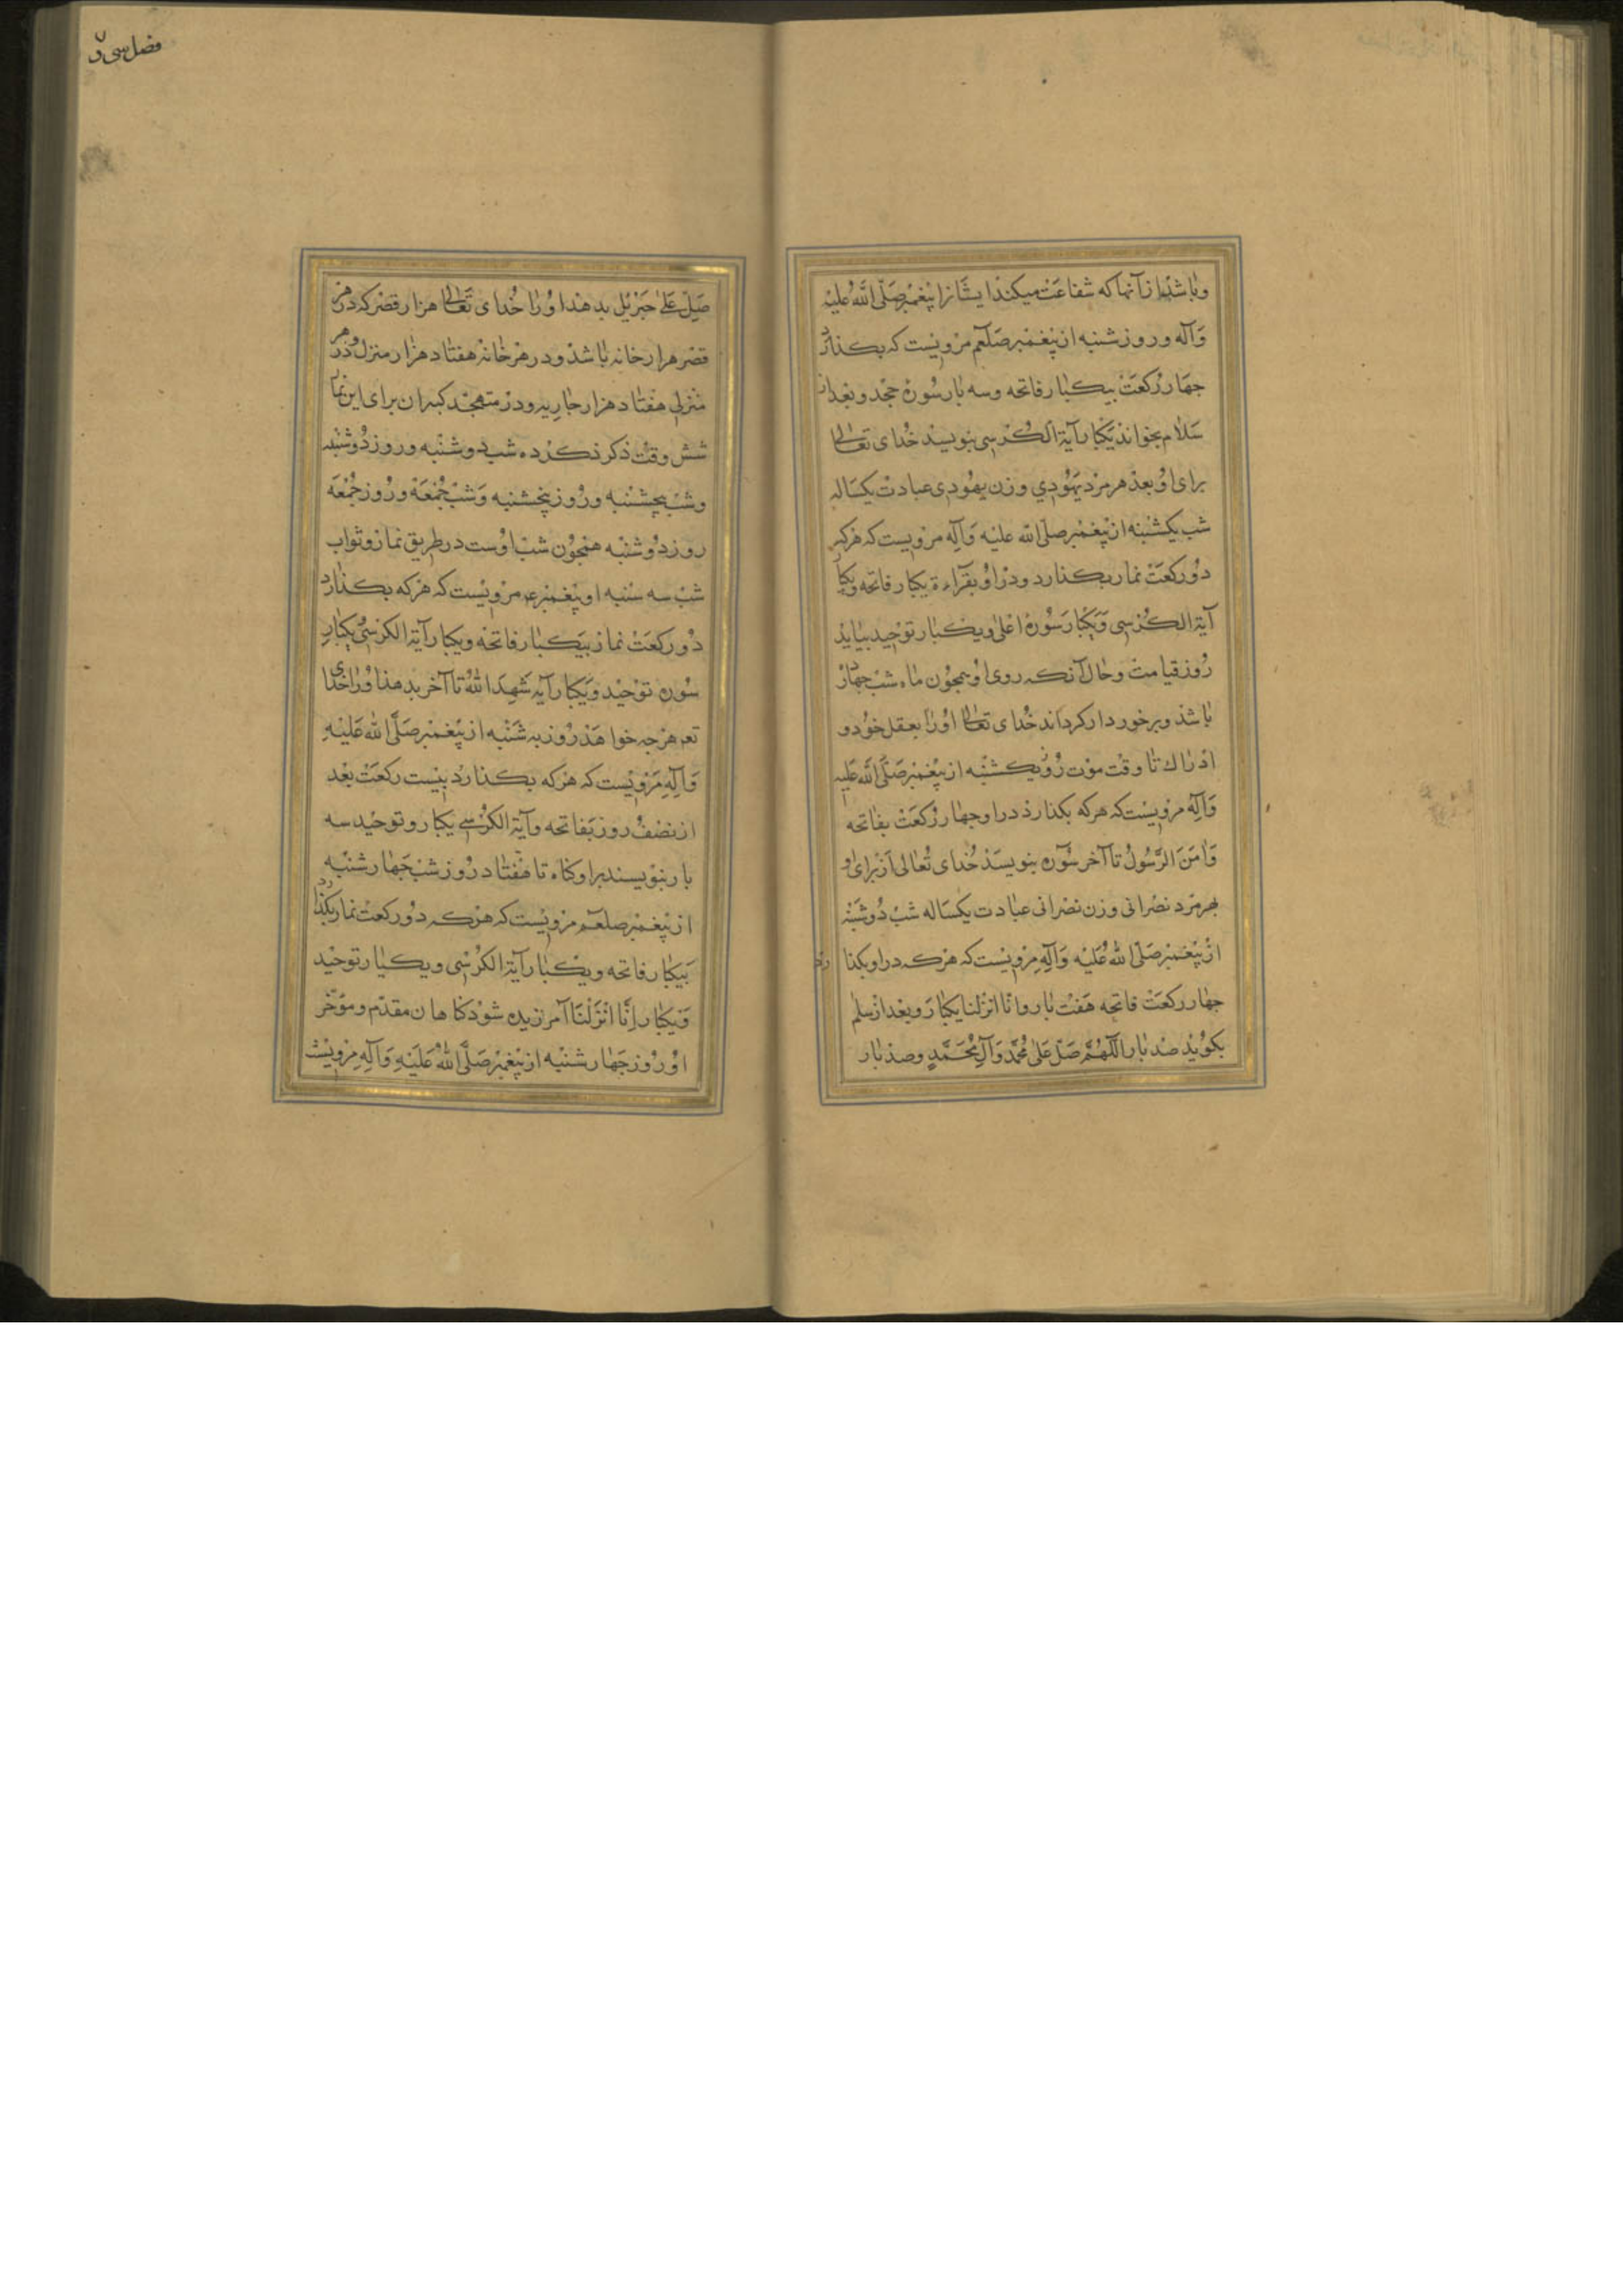 و باشد از آنها که شفاعت میکند ایشانرا پیغمبر صلی الله علیه
وآله و روز شنبه از پیغمبر صلعم مرویست که بکذارد
جهار رکعت بیکبار فاتحه و سه بار سورهٔ جحد و بعد از
سلام بخواند یکبار آیة الکرسی بنویسد خدای تعالی
برای او بعدد هر مرد یهودی و زن یهودی عبادت یکساله
شب یکشنبه از پیغمبر صلی الله علیه وآله مرویست که هرکه
دو رکعت نماز بکذارد و در او بقراءة یکبار فاتحه و یکبار
آیة الکرسی و یکبار سورهٔ اعلی و یکبار توحید بیاید
روز قیامت و حال آنکه روی او همجون ماه شب جهارده
باشد و برخوردار کرداند خدای تعالی او را بعقل خود و
ادراک تا وقت موت روز یکشنبه از پیغمبر صلی الله علیه
وآله مرویست که هرکه بکذارد در او جهار رکعت بفاتحه
وآمن الرسول تا آخر سوره بنویسد خدای تعالی از برای او
بهر مرد نصرانی و زن نصرانی عبادت یکساله شب دوشنبه
از پیغمبر صلی الله علیه وآله مرویست که هرکه در او بکذارد
جهار رکعت فاتحه هفت بار و انا انزلنا یکبار و بعد از سلام
بکوید صد بار اللهم صل علی محمد وآل محمد و صد بار
فصل سی و
صل علی جبرئیل بدهد او را خدای تعالی هزار قصر که در هر
قصر هزار خانه باشد و در هر خانه هفتاد هزار منزل و در هر
منزلی هفتاد هزار جاریه و در متهجد کبیر آن برای این نماز
شش وقت ذکر کرده شب دوشنبه و روز دوشنبه
و شب پنجشنبه و روز پنجشنبه و شب جمعه و روز جمعه
روز دوشنبه همجون شب اوست در طریق نماز و ثواب
شب سه شنبه از پیغمبر ع مرویست که هرکه بکذارد
دو رکعت نماز بیکبار فاتحه و یکبار آیة الکرسی و یکبار
سوره توحید و یکبار آیه شهد الله تا آخر بدهد او را خدای
تعـ هرجه خواهد روز سه شنبه از پیغمبر صلی الله علیه
وآله مرویست که هرکه بکذارد بیست رکعت بعد
از نصف روز بفاتحه و آیة الکرسی یکبار و توحید سه
بار ننویسند بر او کناه تا هفتاد روز شب جهارشنبه
از پیغمبر صلعم مرویست که هرکه دو رکعت نماز بکذارد
بیکبار فاتحه و یکبار آیة الکرسی و یکبار توحید
و یکبار انا انزلنا آمرزیده شود کناهان مقدم و مؤخر
او روز جهارشنبه از پیغمبر صلی الله علیه وآله مرویست